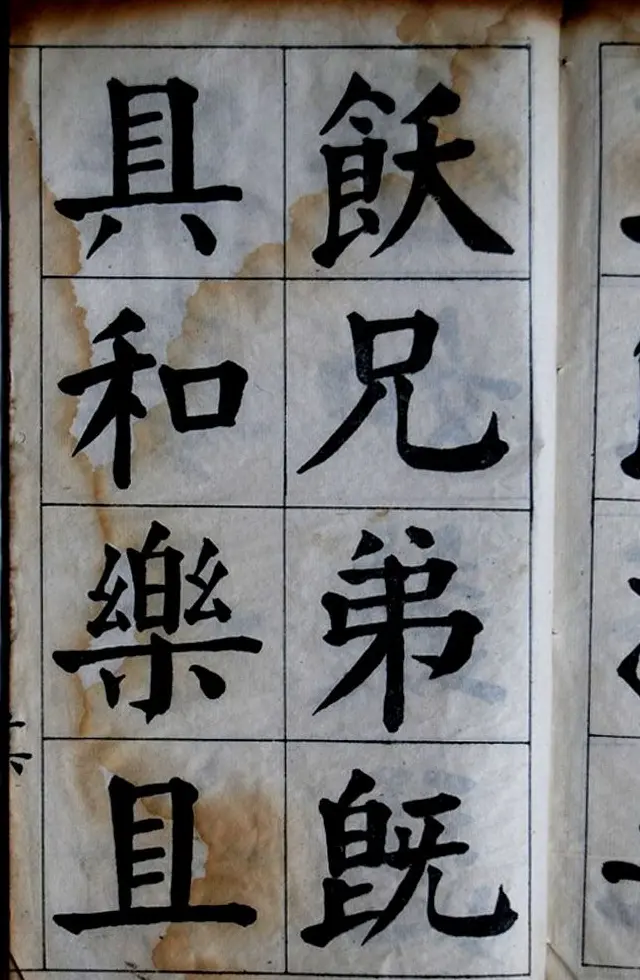 飫兄弟既
具和樂且